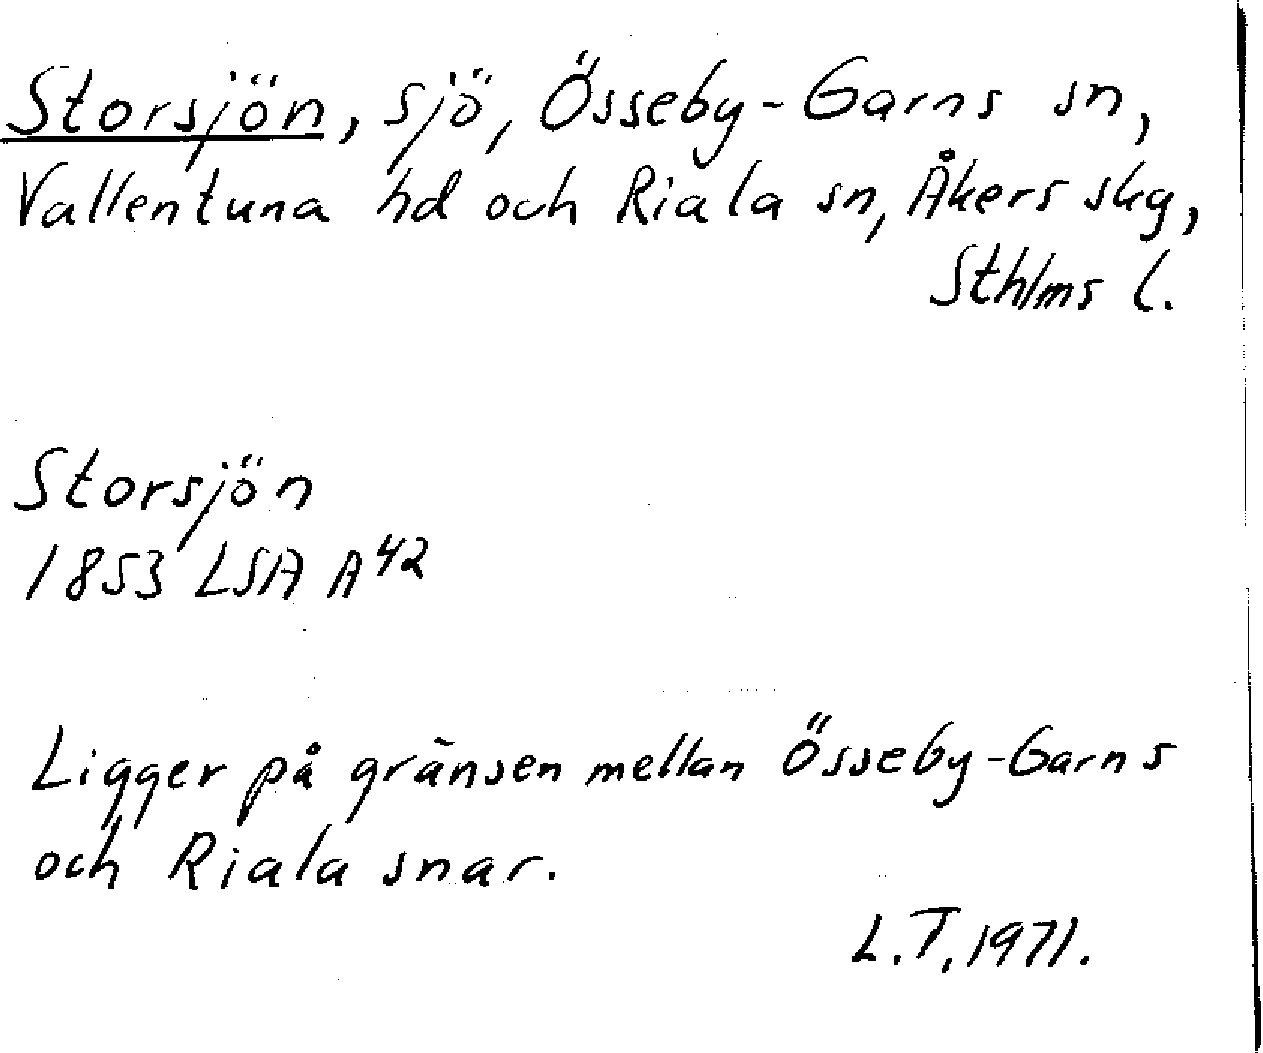 Storsjön, sjö, Össeby-Garns sn,
Vallentuna hd och Riala sn, Åkers skg,
Sthlms l.
Storsjön
1853 LSA A42
Ligger på gränsen mellan Össeby-Garns
och Riala snar.
L.T. 1971.